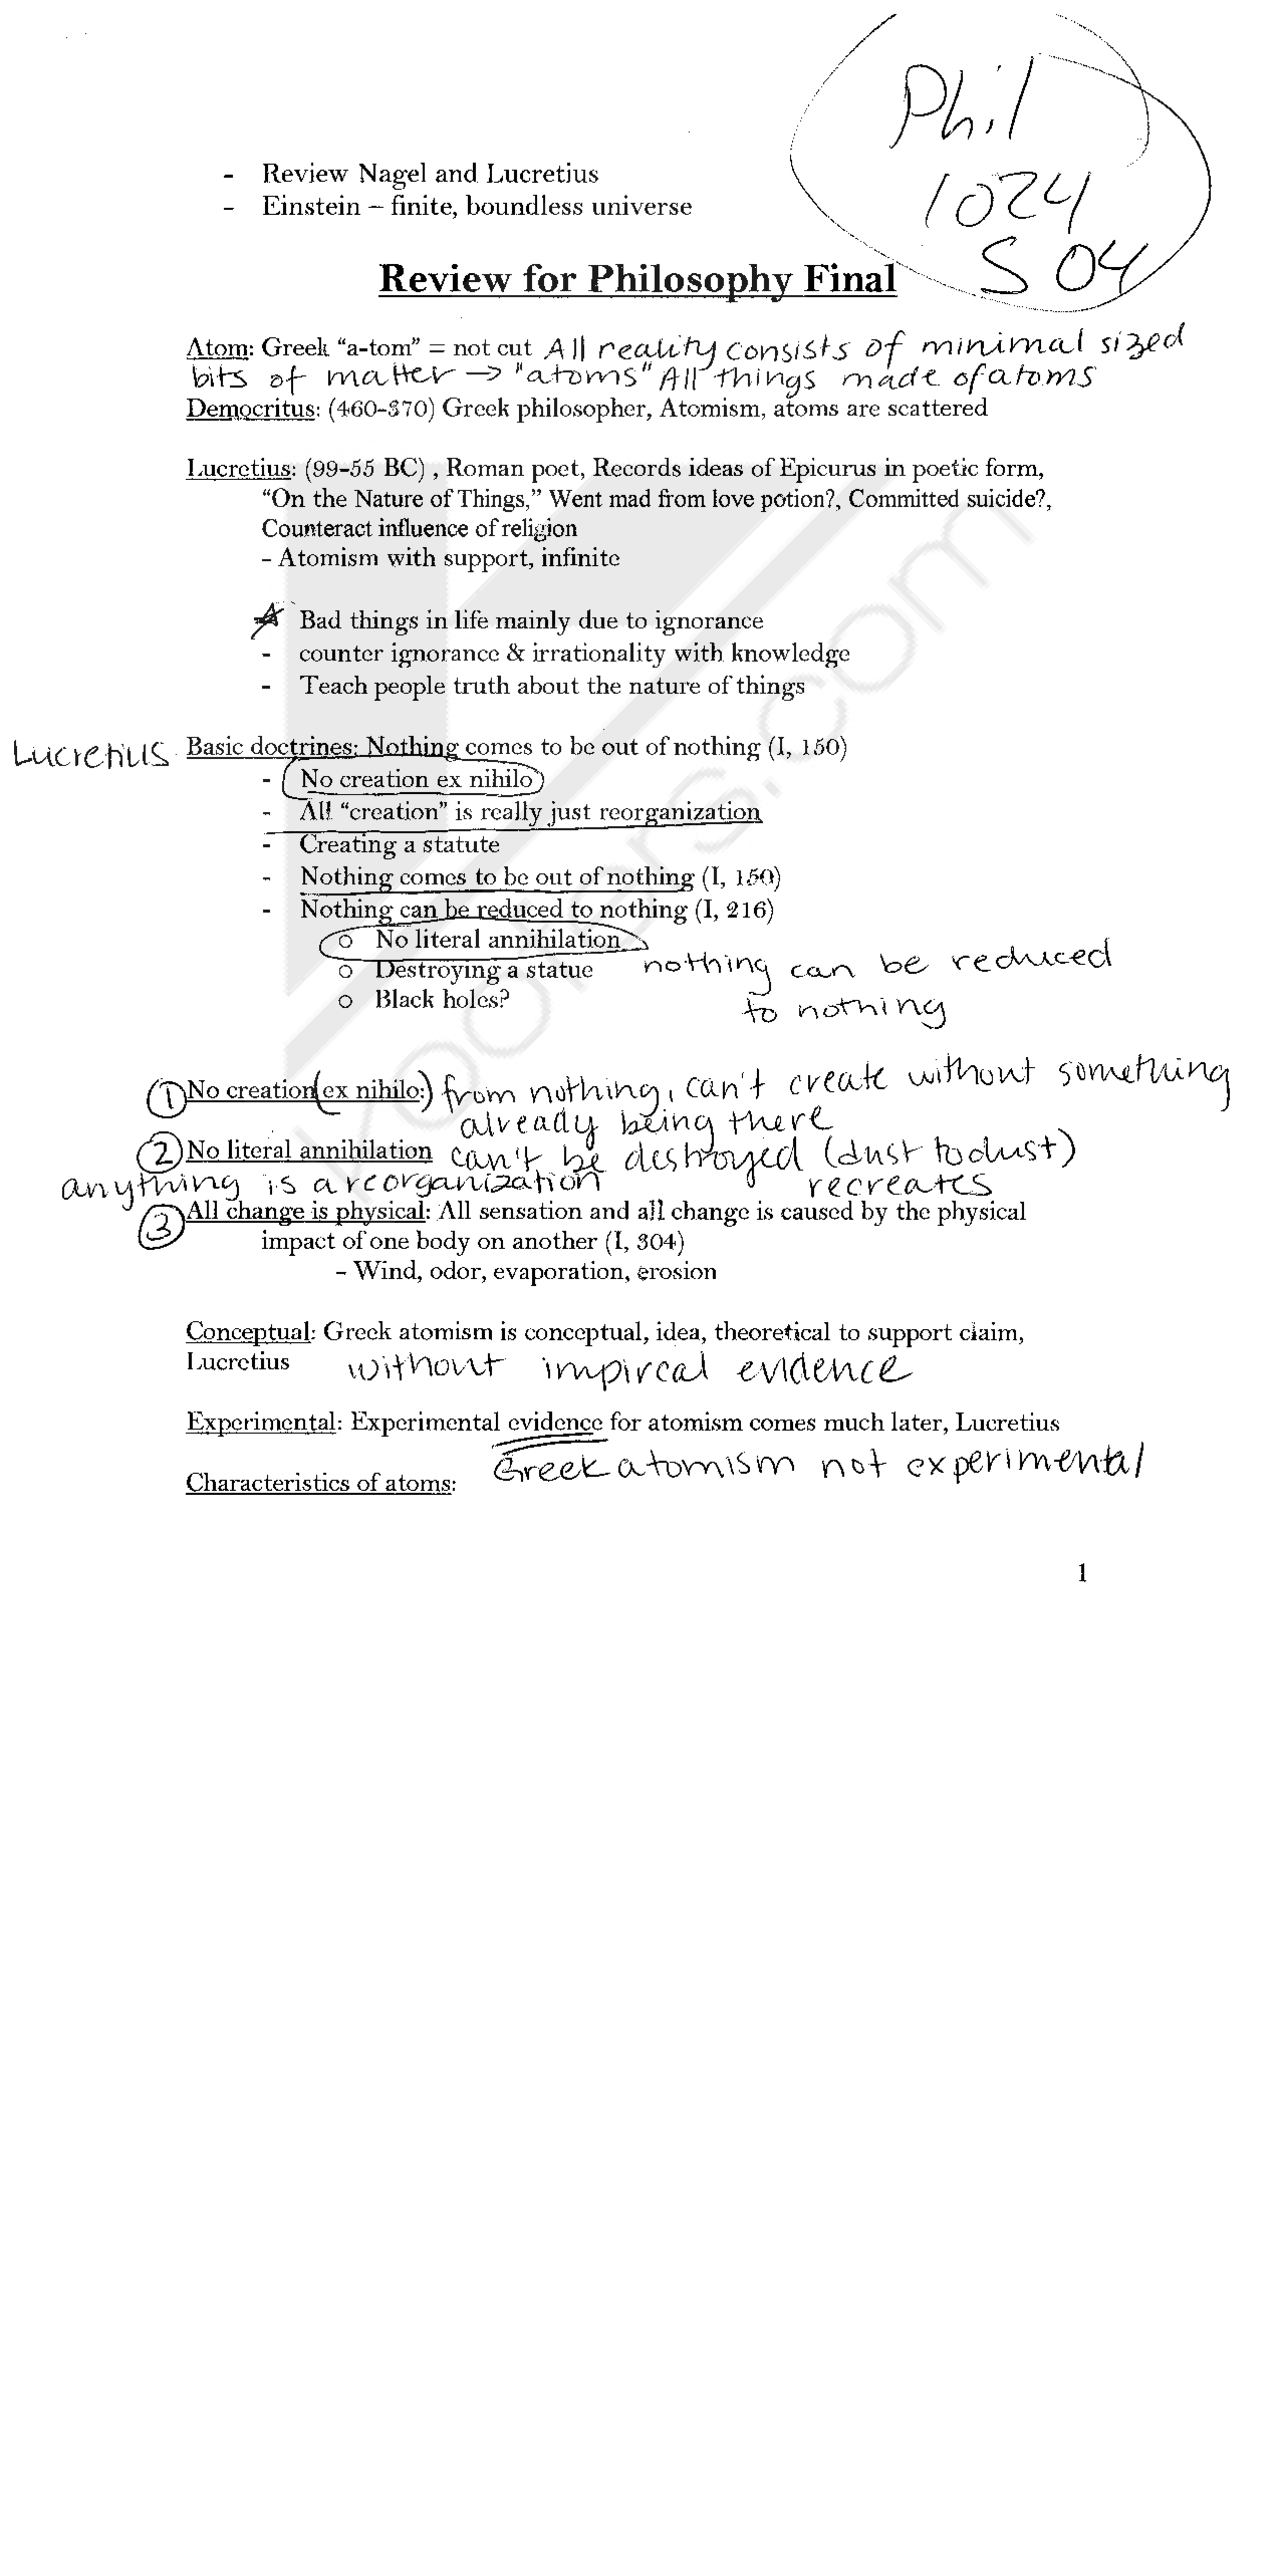 Phil
1024
S 04
- Review Nagel and Lucretius
- Einstein – finite, boundless universe
Review for Philosophy Final
Atom: Greek “a-tom” = not cut All reality consists of minimal sized
bits of matter → "atoms" All things made of atoms
Democritus: (460-370) Greek philosopher, Atomism, atoms are scattered
Lucretius: (99-55 BC) , Roman poet, Records ideas of Epicurus in poetic form,
“On the Nature of Things,” Went mad from love potion?, Committed suicide?,
Counteract influence of religion
- Atomism with support, infinite
Bad things in life mainly due to ignorance
- counter ignorance & irrationality with knowledge
- Teach people truth about the nature of things
Lucretius Basic doctrines: Nothing comes to be out of nothing (I, 150)
- No creation ex nihilo
- All “creation” is really just reorganization
- Creating a statute
- Nothing comes to be out of nothing (I, 150)
- Nothing can be reduced to nothing (I, 216)
o No literal annihilation
o Destroying a statue nothing can be reduced
o Black holes? to nothing
① No creation (ex nihilo:) from nothing, can't create without something
already being there
② No literal annihilation can't be destroyed (dust to dust)
anything is a reorganization recreates
③ All change is physical: All sensation and all change is caused by the physical
impact of one body on another (I, 304)
- Wind, odor, evaporation, erosion
Conceptual: Greek atomism is conceptual, idea, theoretical to support claim,
Lucretius without impircal evidence
Experimental: Experimental evidence for atomism comes much later, Lucretius
Greek atomism not experimental
Characteristics of atoms:
1
koofers.com